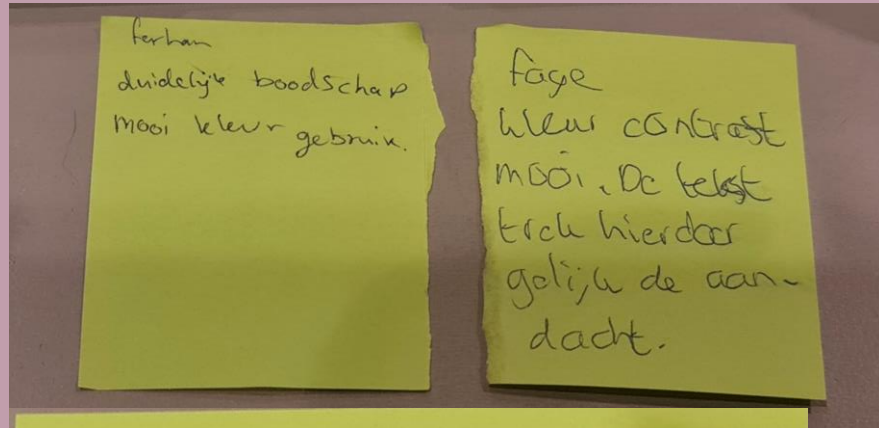 ferhan
duidelijke boodschap
mooi kleur gebruik.
faye
kleur contrast
mooi. De tekst
trek hierdoor
gelijk de aan-
dacht.